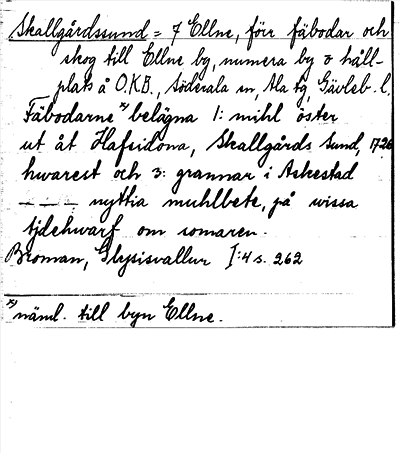 Skallgårdssund = 7 Ellne, förr fäbodar och
skog till Ellne by, numera by o håll-
plats å O.K.B., Söderala sn, Ala tg, Gävleb. l.
Fäbodarne *) belägna 1: mihl öster
ut åt Hafsidona, Skallgårds Sund, 1726
hwarest och 3: grannar i Askestad
- - - nyttia muhlbete, på wissa
tjdehwarf om somaren.
Broman, Glysisvallur I:4 s. 262
*) näml. till byn Ellne.